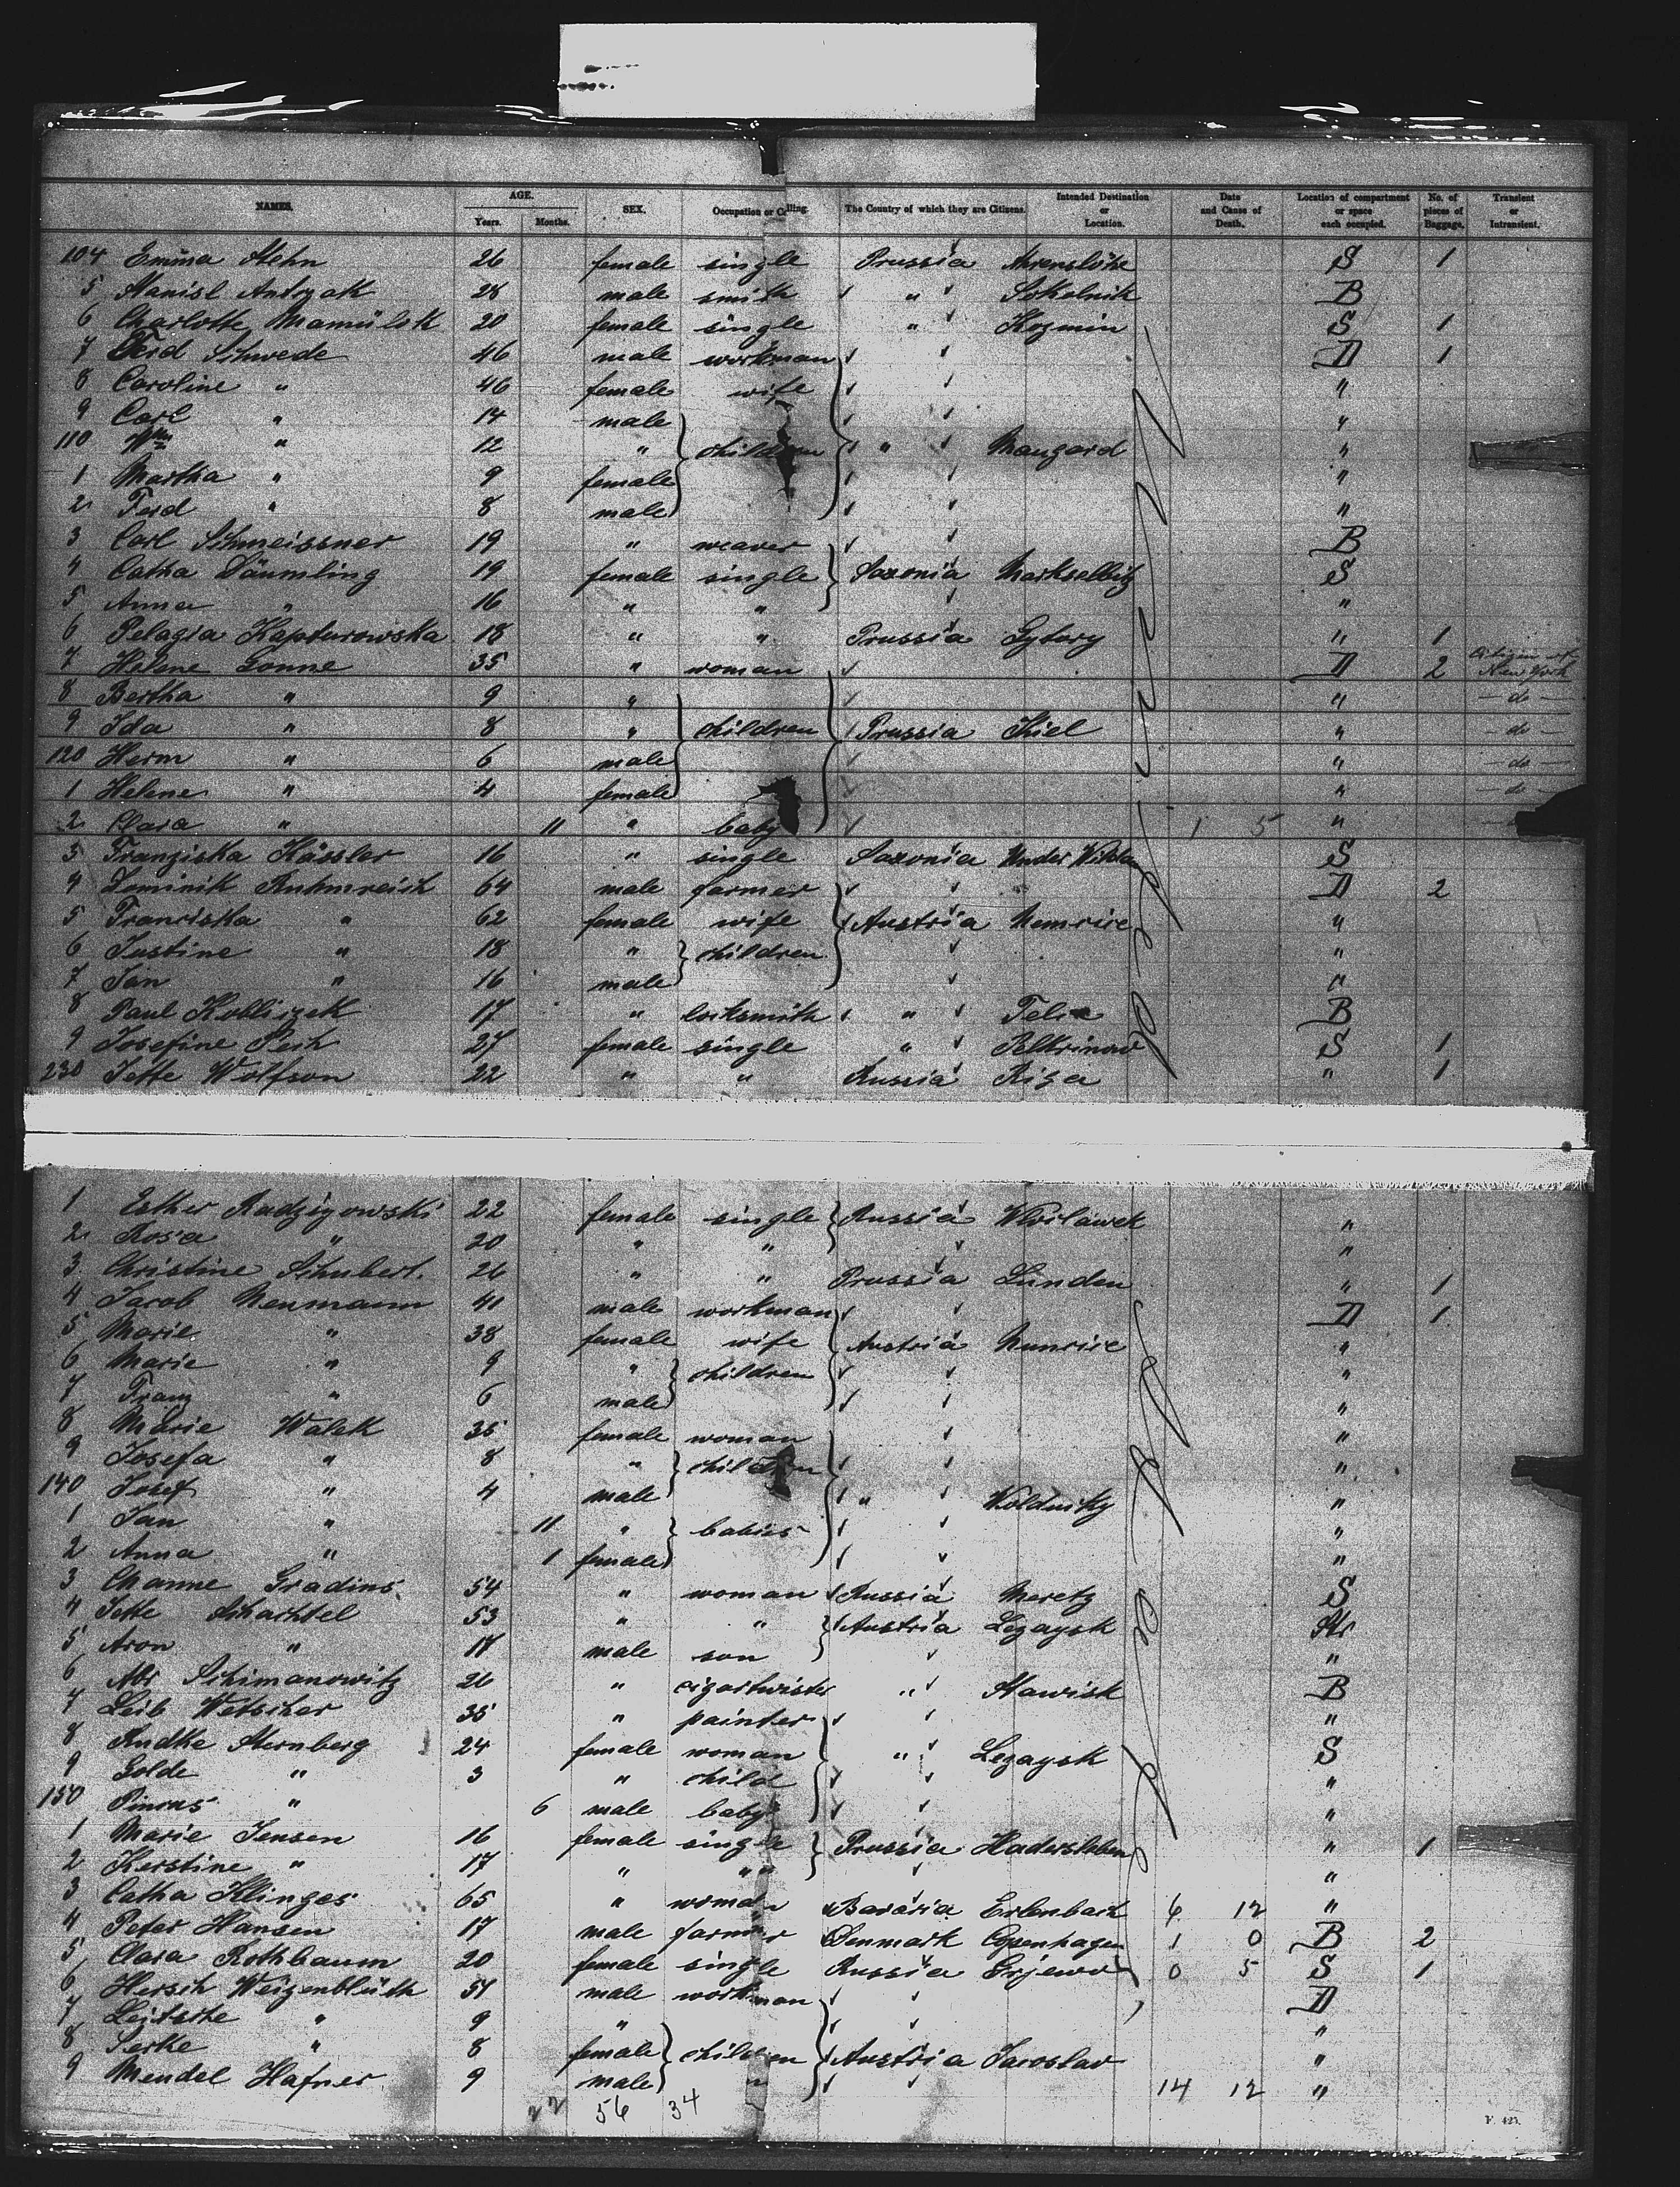 NAMES. AGE. Years. Months. SEX. Occupation or Calling. The Country of which they are Citizens. Intended Destination or Location. Date and Cause of Death. Location of compartment or space each occupied. No. of pieces of Baggage. Transient or Intransient.
104 Emma Stehn 26 female single Prussia S 1
5 Stanisl Antryak 28 male smith " Sokolnik B
6 Charlotte 20 female single " Kozmin S 1
7 Ferd Schwede 46 male workman D 1
8 Caroline " 46 female wife "
9 Carl " 14 male "
110 Wm " 12 " children " Maugard "
1 Martha " 9 female "
2 Ferd " 8 male "
3 Carl Schmeissner 19 " weaver B
4 Catha Däumling 19 female single Saxonia S
5 Anna " 16 " " "
6 Pelagia Kapturowska 18 " " Prussia " 1
7 Helene Gonne 35 " woman D 2 Citizen of New York
8 Bertha " 9 " " - do -
9 Ida " 8 " children Prussia Kiel " - do -
120 Herm " 6 male " - do -
1 Helene " 4 female " - do -
2 Clara " 11 " baby 1 5 "
3 Franziska Kässler 16 " single Saxonia S
4 Dominik Ruhmreich 64 male farmer D 2
5 Franciska " 62 female wife Austria "
6 Justine " 18 " children "
7 Jan " 16 male "
8 Paul Kolliczek 17 " locksmith " B
9 Josefine 27 female single " S 1
230 Jette Wolfson 22 " " Russia Riga " 1
1 Esther Radzigowski 22 female single Russia "
2 Rosa " 20 " " "
3 Christine Schubert. 26 " " Prussia Lunden " 1
4 Jacob Neumann 41 male workman D 1
5 Marie " 38 female wife Austria "
6 Marie " 9 " children "
7 Franz " 6 male "
8 Marie Walek 35 female woman "
9 Josefa " 8 " children "
140 Josef " 4 male " "
1 Jan " 11 " babies "
2 Anna " 1 female "
3 Channe Gradins 54 " woman Russia Meretz S
4 Jette Schachtel 53 " " Austria Lezaysk
5 Aron " male son "
6 Abr Schimanowitz 26 " cigartwister " Stawisk B
7 Leib Wetscher 35 " painter "
8 Rudke Sternberg 24 female woman " Lezaysk S
9 Golde " 3 " child "
150 Pincus " 6 male baby "
1 Marie Jensen 16 female single Prussia Hadersleben " 1
2 Kerstine " 17 " " "
3 Catha Klinges 65 " woman Bavaria Erlenbach 6 12 "
4 Peter Hansen 17 male farmer Denmark Copenhagen 1 0 B 2
5 Clara Rothbaum 20 female single Russia 0 5 S 1
6 Hersch Weizenblüth 51 male workman D
7 Leitsche " 9 " "
8 Serke " 8 female children Austria Jaroslav "
9 Mendel Hafner 9 male " 14 12 "
22 56 34
F. 425.